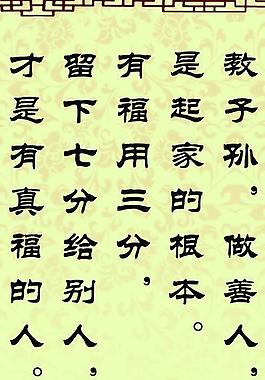 教子孙，做善人，
是起家的根本。
有福用三分，
留下七分给别人，
才是有真福的人。